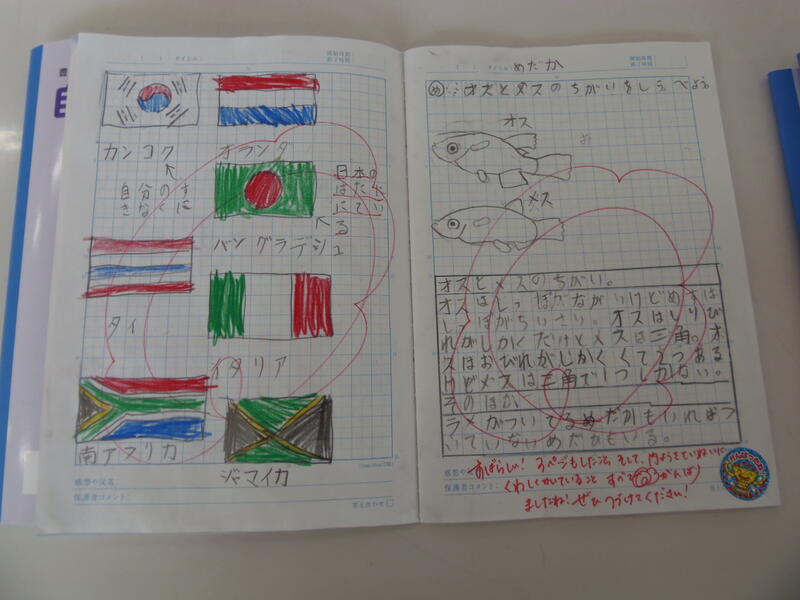 タイトル：
開始時刻
終了時刻
カンコク
オランダ
自分のす
きなくに
日本の
はたに
にてい
る
バングラデシュ
タイ
イタリア
南アフリカ
ジャマイカ
感想や反省
保護者コメント：
答え合わせ
タイトル めだか
開始時刻
終了時刻
め…オスとメスのちがいをしらべよう。
オス
メス
オスとメスのちがい。
オスはしっぽがながいけどめすは
しっぽがちいさい。オスはしりび
れがしかくだけどメスは三角。オ
スはおびれがしかくくて
けどメスは三角で1つしかない。
そのほか
ラメがついてるめだかもいればつ
いていないめだかもいる。
感想や
保護者コメント：
すばらしい！3ページもしたこと、そして、内ようをていねいに
くわしくかいていること すべて がんばり
ましたね！ぜひつづけてください！